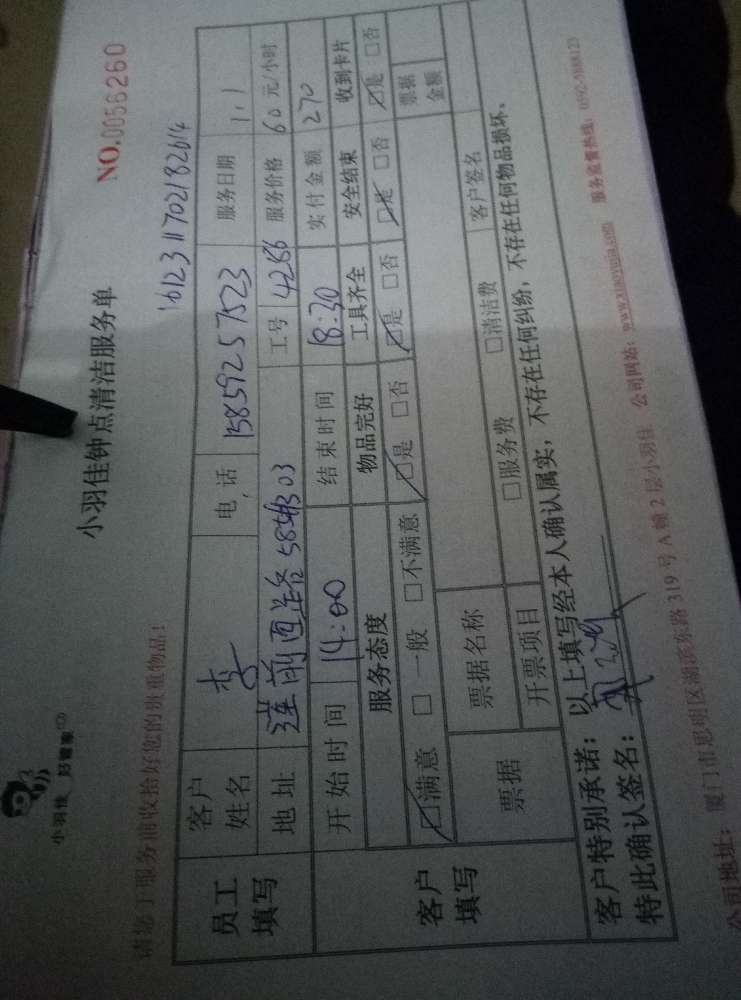 小羽佳 好管家
小羽佳钟点清洁服务单
NO.0056260
请您于服务前收拾好您的贵重物品！
1612311702182614
员工填写
客户姓名 李 电话 15859257523 服务日期 1.1
地址 莲前西路58号303 工号 4266 服务价格 60元/小时
客户填写
开始时间 14:00 结束时间 18:30 实付金额 270
服务态度 物品完好 工具齐全 安全结束 收到卡片
☑满意 □一般 □不满意 ☑是 □否 ☑是 □否 ☑是 □否 ☑是 □否
票据 票据名称 票据金额
开票项目 □服务费 □清洁费 客户签名
客户特别承诺：以上填写经本人确认属实，不存在任何纠纷，不存在任何物品损坏、
特此确认签名：
公司地址： 厦门市思明区湖滨东路319号A幢2层小羽佳 公司网站：www.xiaoyujia.com 服务监督热线：0592-5888123